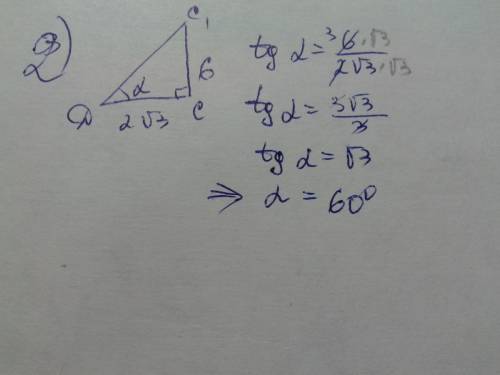 2)
C₁
α
6
D
2√3
C
tg α = ³6·√3 / 2√3·√3
tg α = 3√3 / 3
tg α = √3
⇒ α = 60⁰